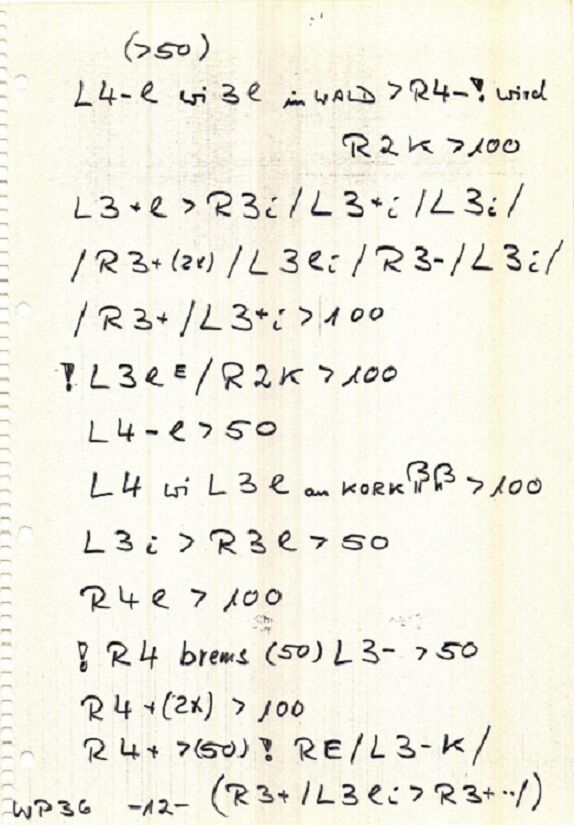 (>50)
L4-l wi 3l in WALD > R4-! wird
R2K > 100
L3+l > R3i / L3+i / L3i /
/ R3+ (2x) / L3li / R3- / L3i /
/ R3+ / L3+i > 100
! L3l E / R2K > 100
L4-l > 50
L4 wi L3l an KORK > 100
L3i > R3l > 50
R4l > 100
! R4 brems (50) L3- > 50
R4+(2x) > 100
R4+ >(50) ! RE / L3-K /
WP36 -12- (R3+ / L3li > R3+ ·· /)